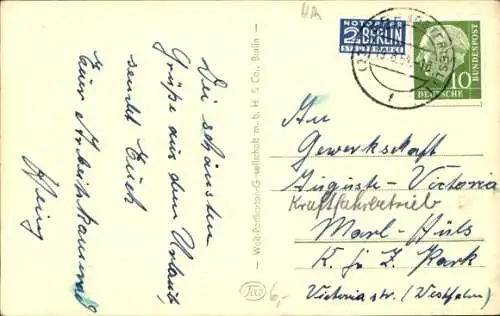 HA
NOTOPFER
2 BERLIN
STEUERMARKE
DEUTSCHE
BUNDESPOST
10
Die schönsten
Grüße aus dem Urlaub
sendet Euch
Euer Arbeitskamerad
Heinz
Woll-Postkarten-Gesellschaft m. b. H. & Co., Berlin
An
Gewerkschaft
Auguste-Victoria
Kraftfahrbetrieb
Marl-Hüls
K. f. Z. Park
Victoria str. (Westfalen)
6,-